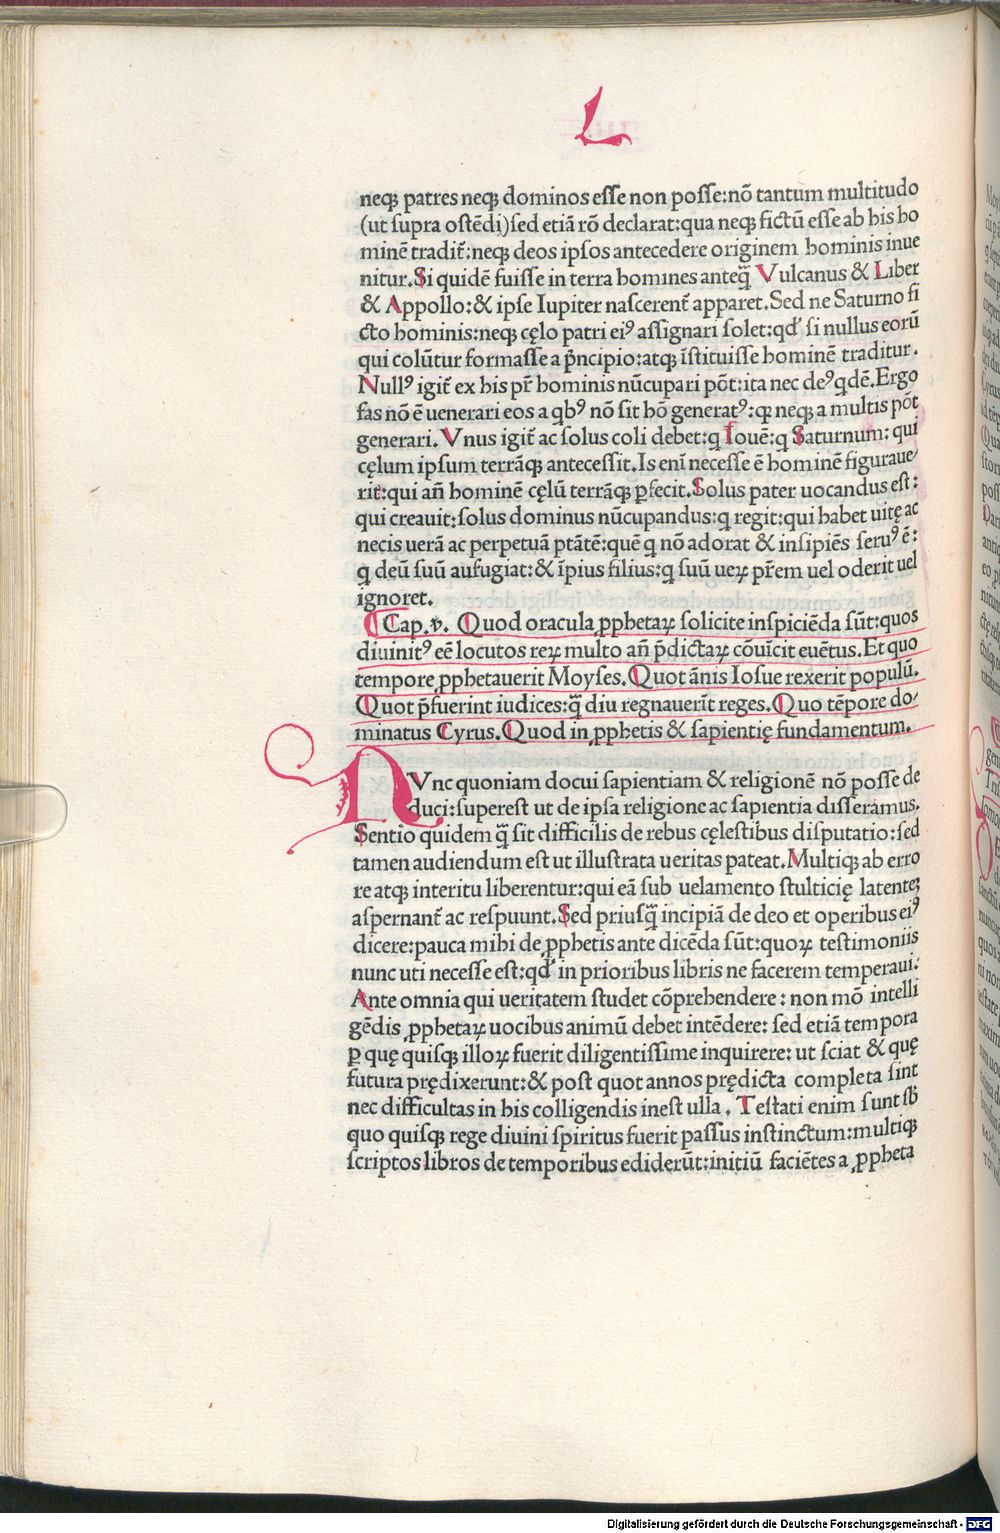 L
neqꝫ patres neqꝫ dominos esse non posse:nõ tantum multitudo
(ut supra ostẽdi)sed etiã rõ declarat:qua neqꝫ fictũ esse ab his ho
minẽ tradit᷑:neqꝫ deos ipsos antecedere originem hominis inue
nitur.Si quidẽ fuisse in terra homines anteq̃ Vulcanus & Liber
& Appollo:& ipse Iupiter nascerent᷑ apparet.Sed ne Saturno fi
cto hominis:neqꝫ cęlo patri eiꝰ assignari solet:qd᷑ si nullus eorũ
qui colũtur formasse a p̃ncipio:atqꝫ ĩstituisse hominẽ traditur.
Nullꝰ igit᷑ ex his pr̃ hominis nũcupari põt:ita nec deꝰ qdẽ.Ergo
fas nõ ẽ uenerari eos a qbꝰ nõ sit hõ generatꝰ:ꝙ neqꝫ a multis põt
generari.Vnus igit᷑ ac solus coli debet:q Iouẽ:q Saturnum:qui
cęlum ipsum terrãqꝫ antecessit.Is enĩ necesse ẽ hominẽ figuraue
rit:qui añ hominẽ cęlũ terrãqꝫ ꝑfecit.Solus pater uocandus est:
qui creauit:solus dominus nũcupandus:q regit:qui habet uitę ac
necis uerã ac perpetuã ptãtẽ:quẽ q nõ adorat & insipiẽs seruꝰ ẽ:
q deũ suũ aufugiat:& ĩpius filius:q suũ ueꝝ pr̃em uel oderit uel
ignoret.
Cap.v. Quod oracula ꝓphetaꝝ solicite inspiciẽda sũt:quos
diuinitꝰ eẽ locutos reꝝ multo añ p̃dictaꝝ cõuĩcit euẽtus.Et quo
tempore ꝓphetauerit Moyses.Quot ãnis Iosue rexerit populũ.
Quot p̃fuerint iudices:q̃ diu regnauerĩt reges.Quo tẽpore do
minatus Cyrus.Quod in ꝓphetis & sapientię fundamentum.
NVnc quoniam docui sapientiam & religionẽ nõ posse de
duci:superest ut de ipsa religione ac sapientia disseramus.
Sentio quidem q̃ sit difficilis de rebus cęlestibus disputatio:sed
tamen audiendum est ut illustrata ueritas pateat.Multiqꝫ ab erro
re atqꝫ interitu liberentur:qui eã sub uelamento stulticię latenteꝫ
aspernant᷑ ac respuunt.Sed priusq̃ incipiã de deo et operibus eiꝰ
dicere:pauca mihi de ꝓphetis ante dicẽda sũt:quoꝝ testimoniis
nunc uti necesse est:qd᷑ in prioribus libris ne facerem temperaui:
Ante omnia qui ueritatem studet cõprehendere:non mõ intelli
gẽdis ꝓphetaꝝ uocibus animũ debet intẽdere:sed etiã tempora
ꝑ quę quisqꝫ illoꝝ fuerit diligentissime inquirere:ut sciat & quę
futura prędixerunt:& post quot annos prędicta completa sint
nec difficultas in his colligendis inest ulla.Testati enim sunt sb̃
quo quisqꝫ rege diuini spiritus fuerit passus instinctum:multiqꝫ
scriptos libros de temporibus ediderũt:initiũ faciẽtes a ꝓpheta
Digitalisierung gefördert durch die Deutsche Forschungsgemeinschaft - DFG